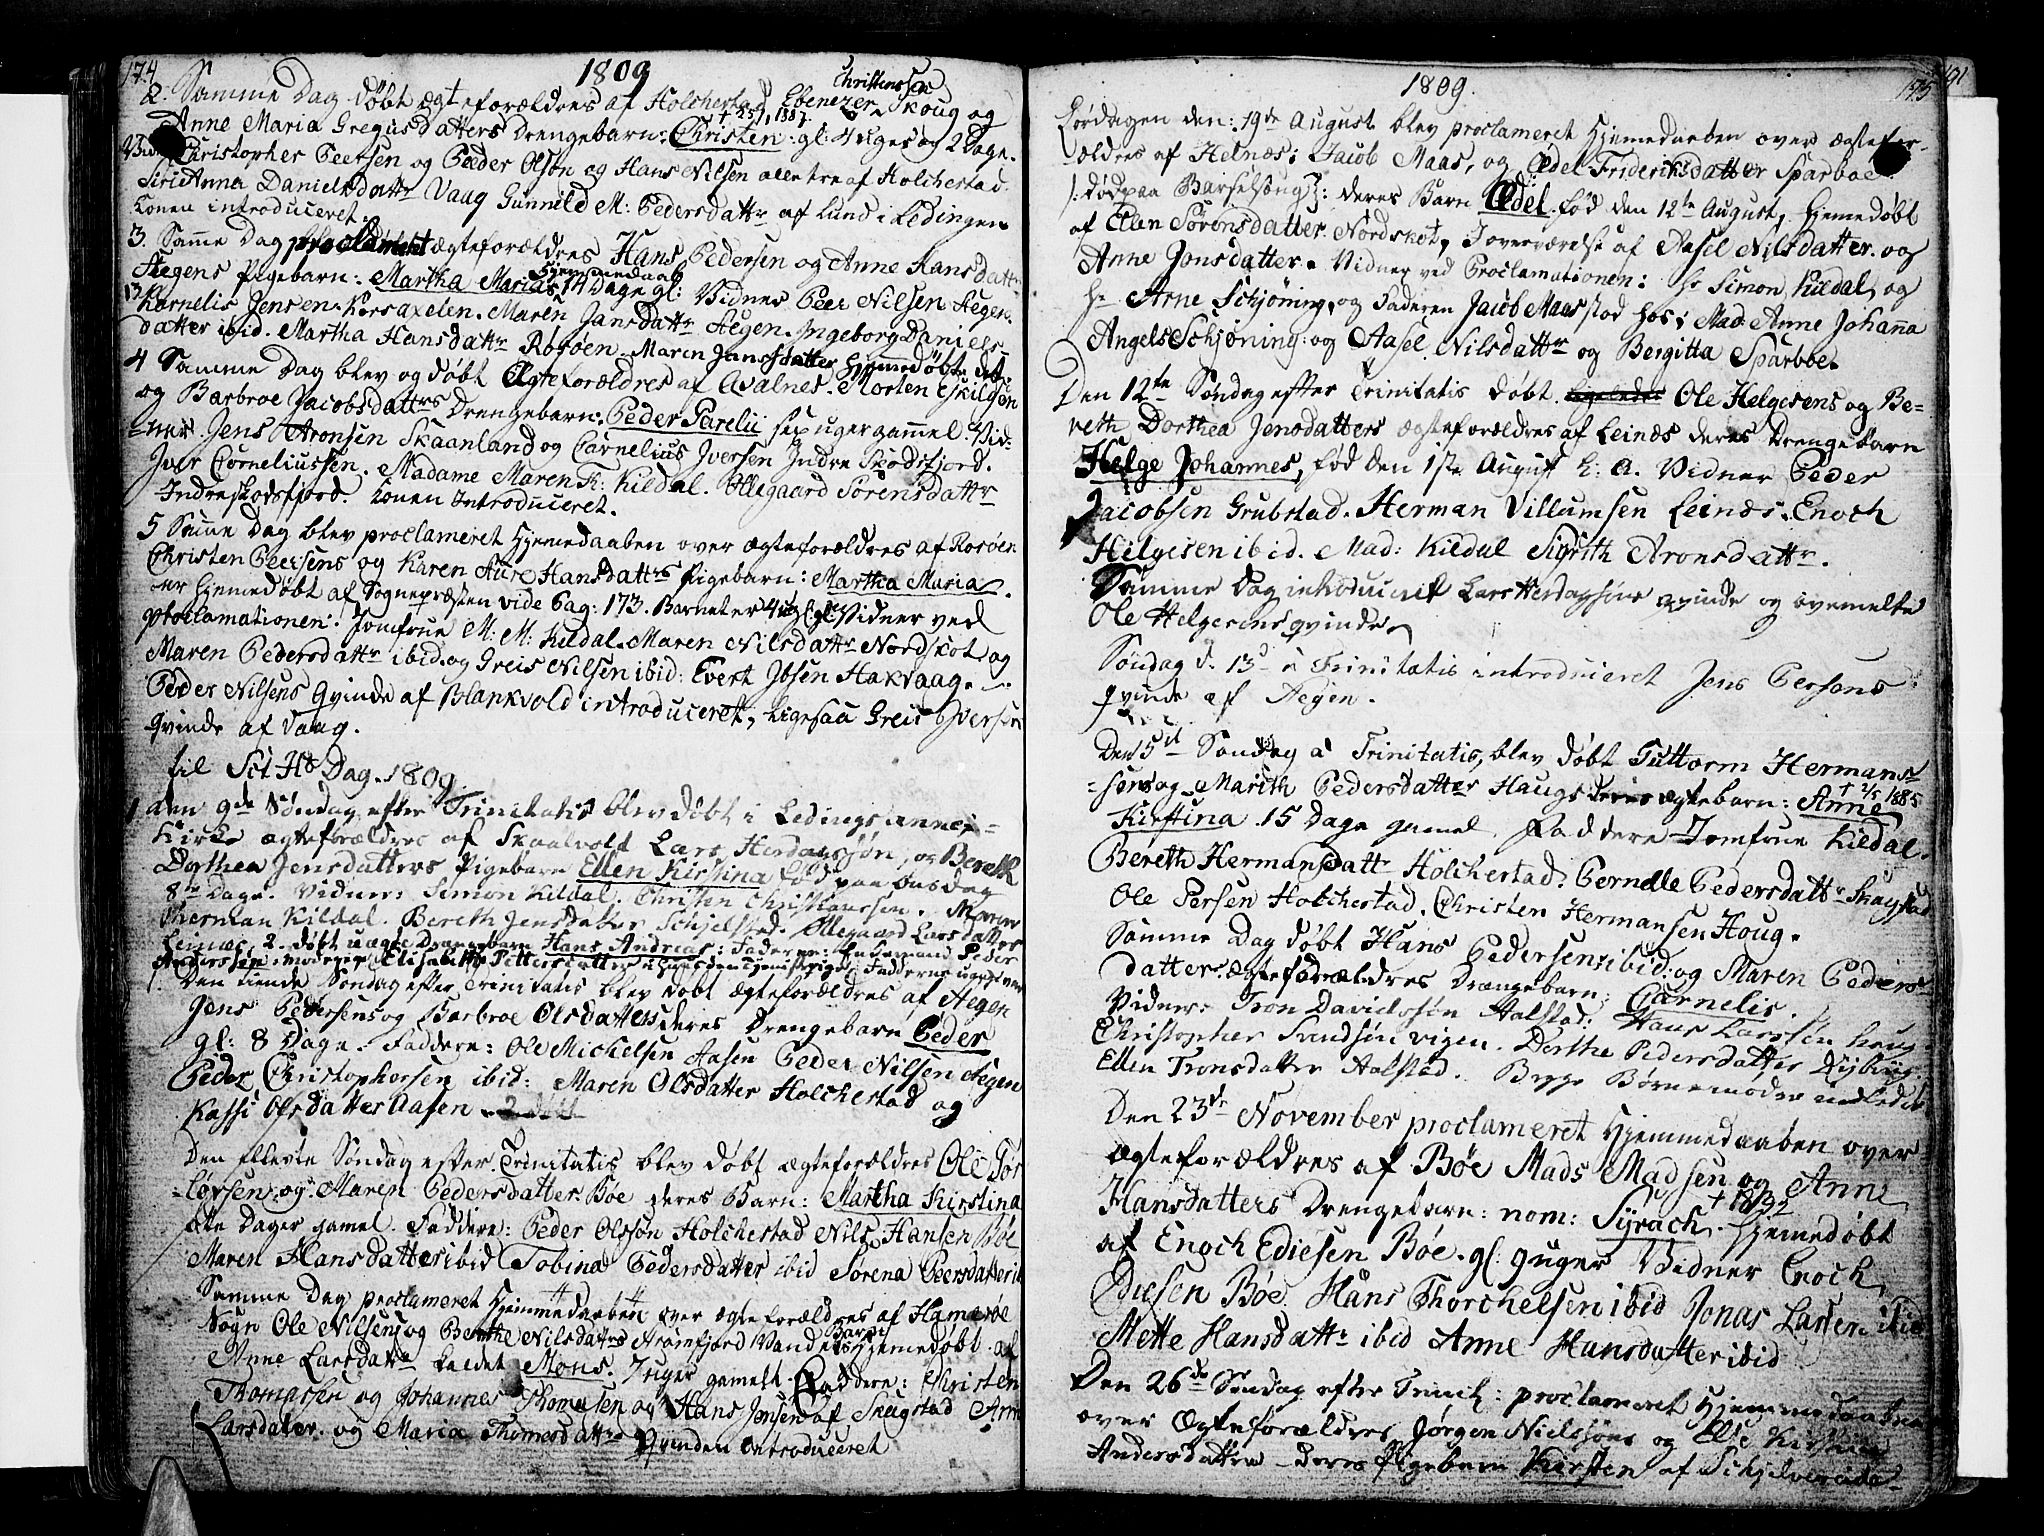 174
1809
Christenssen
2. Samme Dag døbt Ægteforældres af Holchestad Ebenezer Skoug og
+ 25/1 1887
Anne Maria Gregusdatters Drengebarn: Christen: gl: 4 Uger og 2 Dage.
Christopher Peersen og Peder Olsøn og Hans Nilsen alle tre af Holchestad.
Siri Anna Danielsdattr Vaag Gunnild M: Pedersdattr af Lund i Ledingen
Konen introduceret.
3. Samme Dag proclameret ægteforældres Hans Pedersen og Anne Hansdattr
Hiemmedaab
Aegens Pigebarn: Martha Marias 14 Dage gl: Vidner Peer Nilsen Aegen
Karnelis Jensen Korsaxelen. Maren Jansdattr Aegen. Ingeborg Daniels-
datter ibid. Martha Hansdattr Rosøen. Maren Jansdatter hjemmedøbte det.
4 Samme Dag blev og døbt Ægteforældres af Avalnes. Morten Eskilsøn
og Barbroe Jacobsdattrs Drengebarn: Peder Parelii sex uger gammel. Vid-
ner Jens Aronsen Skaanland og Carnelius Iversen Indre Skodsfjord.
Iver Corneliussen. Madame Maren K: Kildal. Ollegaard Sørensdattr
Indreskodsfjord. Konen Introduceret.
5 Samme Dag blev proclameret Hjemedaaben over Ægteforældres af Rosøen
Christen Peersens og Karen Hansdattrs Pigebarn: Martha Maria.
er hjemedøbt af Sognepræsten vide Pag: 173. Barnet er 4 ug: gl: Vidner ved
Proclamationen. Jomfrue M: M: Kildal. Maren Nilsdattr Nordskot og
Maren Pedersdattr ibid. og Greis Nilsen ibid: Evert Jbsen Hakvaag.
Peder Nilsens Qvinde af Blankvold introduceret, ligesaa Greis Iversens
Qvinde af Vaag.
til Sct Hs Dag 1809
1 den 9de Søndag efter Trinitatis blev døbt i Ledings annex-
Kirke ægteforældres af Skaalvold Lars Herdagsøn, og Bereth
Dorthea Jensdatters Pigebarn Ellen Kirstina fød paa Onsdag
8te Dage. Vidner: Simon Kildal. Christen Christiansen. Maren
Herman Kildal. Bereth Jensdatter Schjelstad. Ollegaard Larsdatter
Leinæs. 2. døbt uægte Drengebarn Hans Andreas: Faderen: Peder
Anderssen; moderen Elisabeth Pettersdatter
Den tiende Søndag efter Trinitatis blev døbt Ægteforældres af Aegen
Jens Pedersens og Barbroe Olsdatters deres Drengebarn Peder
gl: 8 Dage. Faddere: Ole Mickelsen Aasen Peder Nilsen Aegen
Peder Christophersen ibid: Maren Olsdatter Holchestad og
Kassi Olsdatter Aasen
Den Ellevte Søndag efter Trinitatis blev døbt ægteforældres Ole Tør
lersen og Maren Pedersdatter Bøe deres Barn: Martha Kirstina
otte Dager gamel. Faddere: Peder Olsson Holchestad Nils Hansen Bøe
Maren Hansdatter ibid Tobina Pedersdatter ibid Sørena Peersdatter ib
Samme Dag proclameret Hjemmedaaben over ægteforældres af Hamerøe
Sogn Ole Nilsens og Berthe Nilsdattrs Strømfjord Vandets Barn Hjemedøbt af
Anne Larsdattr kaldet Mons. 7 uger gamelt. Faddere: Christen
Thomassen og Johannes Thomesen og Hans Jensen af Skagstad Anne
Larsdater og Maria Thomesdattr Qvinden introduceret
1809.
175
Lørdagen den: 19de August blev proclameret Hjemedaaben over ægtefor-
ældres af Helnæs; Jacob Maas, og Edel Frideriksdatter Sparboe
/: død paa Barselseng :/: deres Barn Edel. fød den 12te August, hjemedøbt
af Elen Sørensdatter Nordskot, I overværelse af Aasel Nilsdatter. og
Anne Jonsdatter. Vidner ved Proclamationen: Hr Simon Kildal, og
Hr Arne Schjøning, og Faderen Jacob Maas stod hos; Mad: Anne Johana
Angels Schjøning: og Aasel Nilsdattr og Bergitta Sparboe.
Den 12te Søndag efter Trinitatis døbt Ole Helgesens og Be-
reth Dorthea Jensdatters ægteforældres af Leinæs deres Drengebarn
Helge Johannes, fød den 1ste August h: a. Vidner Peder
Jacobsen Grubstad. Herman Villumsen Leinæs. Enoch
Helgesen ibid. Mad: Kildal Sigrith Aronsdattr.
Samme Dag introduceret Lars Herdagsøns qvinde og ovemelte
Ole Helgesens qvinde.
Søndag d. 13d a Trinitatis introduceret Jens Persens
qvinde af Aegen.
Den 15d Søndag a Trinitatis, blev døbt Tuttorm Hermans-
søns og Marith Pedersdatter Haugs deres ægtebarn: Anne
+ 2/5 1885
Kirstina 15 Dage gamel. Faddere Jomfrue Kildal.
Bereth Hermansdattr Holchestad. Pernelle Pedersdattr Skagstad
Ole Persen Holchestad. Christen Hermansen Houg.
Samme Dag døbt Hans Pedersens ibid: og Maren Peders-
datter ægteforældres Drengebarn: Carnelis.
Vidner: Tron Davidssøn Aalstad: Hans Larssen haug
Christopher Svendsøn vigen. Dorthe Pedersdatter
Ellen Tronsdatter Aalstad. Begge Børnemødre
Den 23de November proclameret Hjemmedaaben over
ægteforældres af Bøe Mads Madsen og Anne
Hansdatters Drengebarn: nom: Syrach. hjemedøbt
af Enoch Ediesen Bøe. gl: 9 uger Vidner Enoch
Ediesen Bøe Hans Thorchelsen ibid Jonas Larsen ibid
Mette Hansdattr ibid Anne Hansdatter ibid
Den 26de Søndag efter Trinit: proclameret Hjemmedaaben
over Ægteforældres Jørgen Nielsøns og Else Kirstina
Andersdatters deres Pigebarn Kirsten af